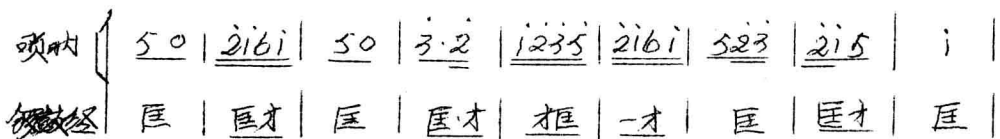 唢呐 5 0 | 2̇ i̇ 6 i̇ | 5 0 | 3̇ · 2̇ | i̇ 2̇ 3̇ 5 | 2̇ i̇ 6 i̇ | 5 2̇ 3̇ | 2̇ i̇ 5 | i̇ |
锣鼓经 匡 | 匡才 | 匡 | 匡·才 | 才匡 | 一才 | 匡 | 匡才 | 匡 |